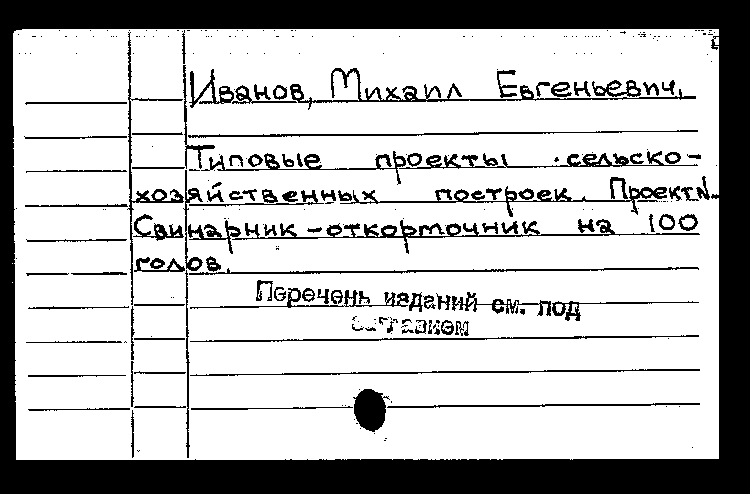 Иванов, Михаил Евгеньевич.
Типовые проекты сельско-
хозяйственных построек. Проект N
Свинарник-откормочник на 100
голов.
Перечень изданий см. под
заглавием